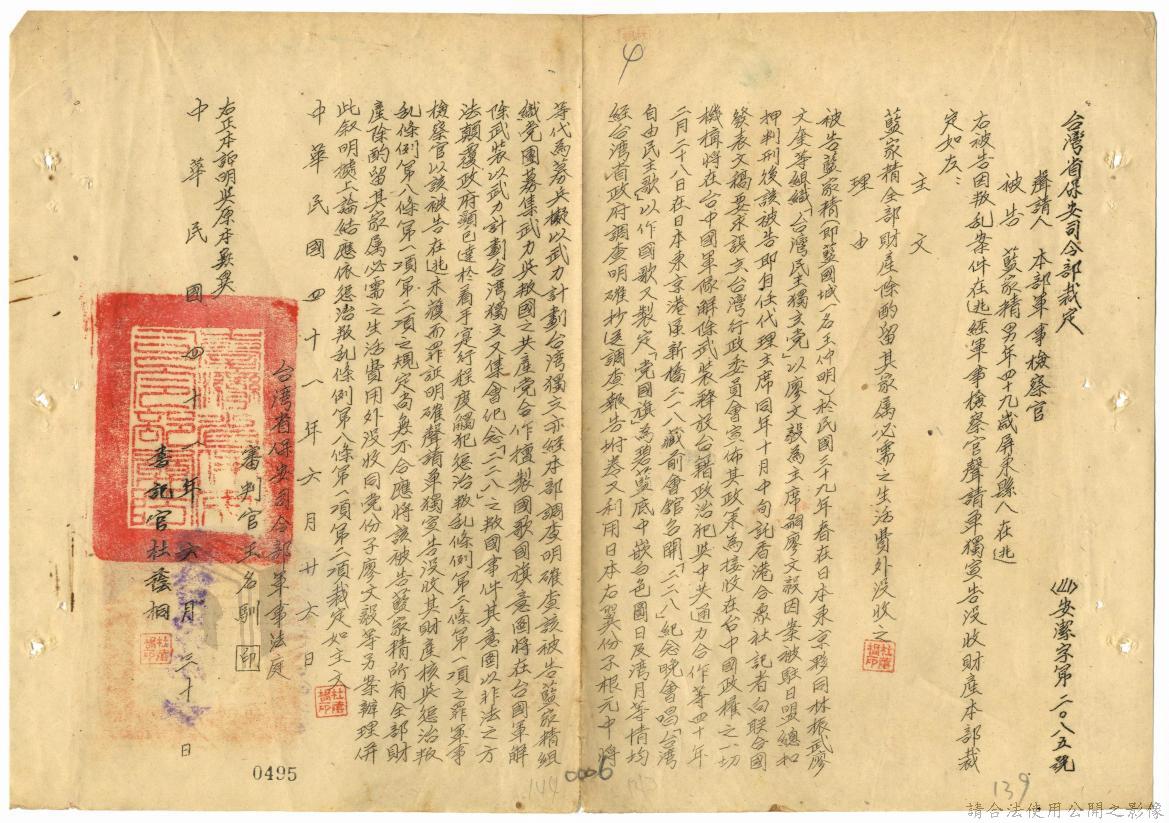 台灣省保安司令部裁定
(41)安潔字第二〇八五號
聲請人 本部軍事檢察官
被告 藍家精男年四十九歲屏東縣人在逃
右被告因叛乱案件在逃經軍事檢察官聲請單獨宣告沒收財產本部裁
定如左：
主文
藍家精全部財產除酌留其家属必需之生活費外沒收之
理由
被告藍家精(即藍國城一名王仲明)於民國三十九年春在日本東京夥同林振武廖
文奎等組織「台灣民主獨立党」以廖文毅為主席嗣廖文毅因案被駐日盟總扣
押判刑後該被告即自任代理主席同年十月中旬託香港合众社記者向联合國
發表文稿要求設立台灣行政委員會宣佈其政策為接收在台中國政權之一切
機構將在台中國軍隊解除武装释放台籍政治犯與中共通力合作等四十年
二月二十八在日本東京港區新橋二一八藏前會館召開「二二八」紀念晚會唱「台灣
自由民主歌」以作國歌又製定「党國旗」為碧藍底中嵌白色圓日及湾月等情均
經台灣省政府調查明確抄送調查報告附卷又利用日本右翼份子根元中將
等代為募兵擬以武力計劃台湾獨立亦經本部調查明確查該被告藍家精組
織党團募集武力與叛國之共產党合作擅製國歌國旗意圖將在台國軍解
除武装以武力計劃台湾獨立又集會纪念「二二八」之叛國事件其意圖以非法之方
法顛覆政府顯已達於着手實行程度觸犯惩治叛乱條例第二條第一項之罪軍事
檢察官以該被告在逃未獲而罪証明確聲請單獨宣告沒收其財產核與惩治叛
乱條例第八條第一項第二項之規定尚無不合應將該被告藍家精所有全部財
產除酌留其家属必需之生活費用外沒收同党份子廖文毅等另案辦理併
此叙明據上論結應依惩治叛乱條例第八條第一項第二項裁定如主文
中華民國四十一年六月廿六日
台湾省保安司令部軍事法庭
審判官王名馴 印
右正本証明與原本無異
書記官杜蔭桐
中華民國四十一年六月三十日
0495
0006
144
143
139
請合法使用公開之影像